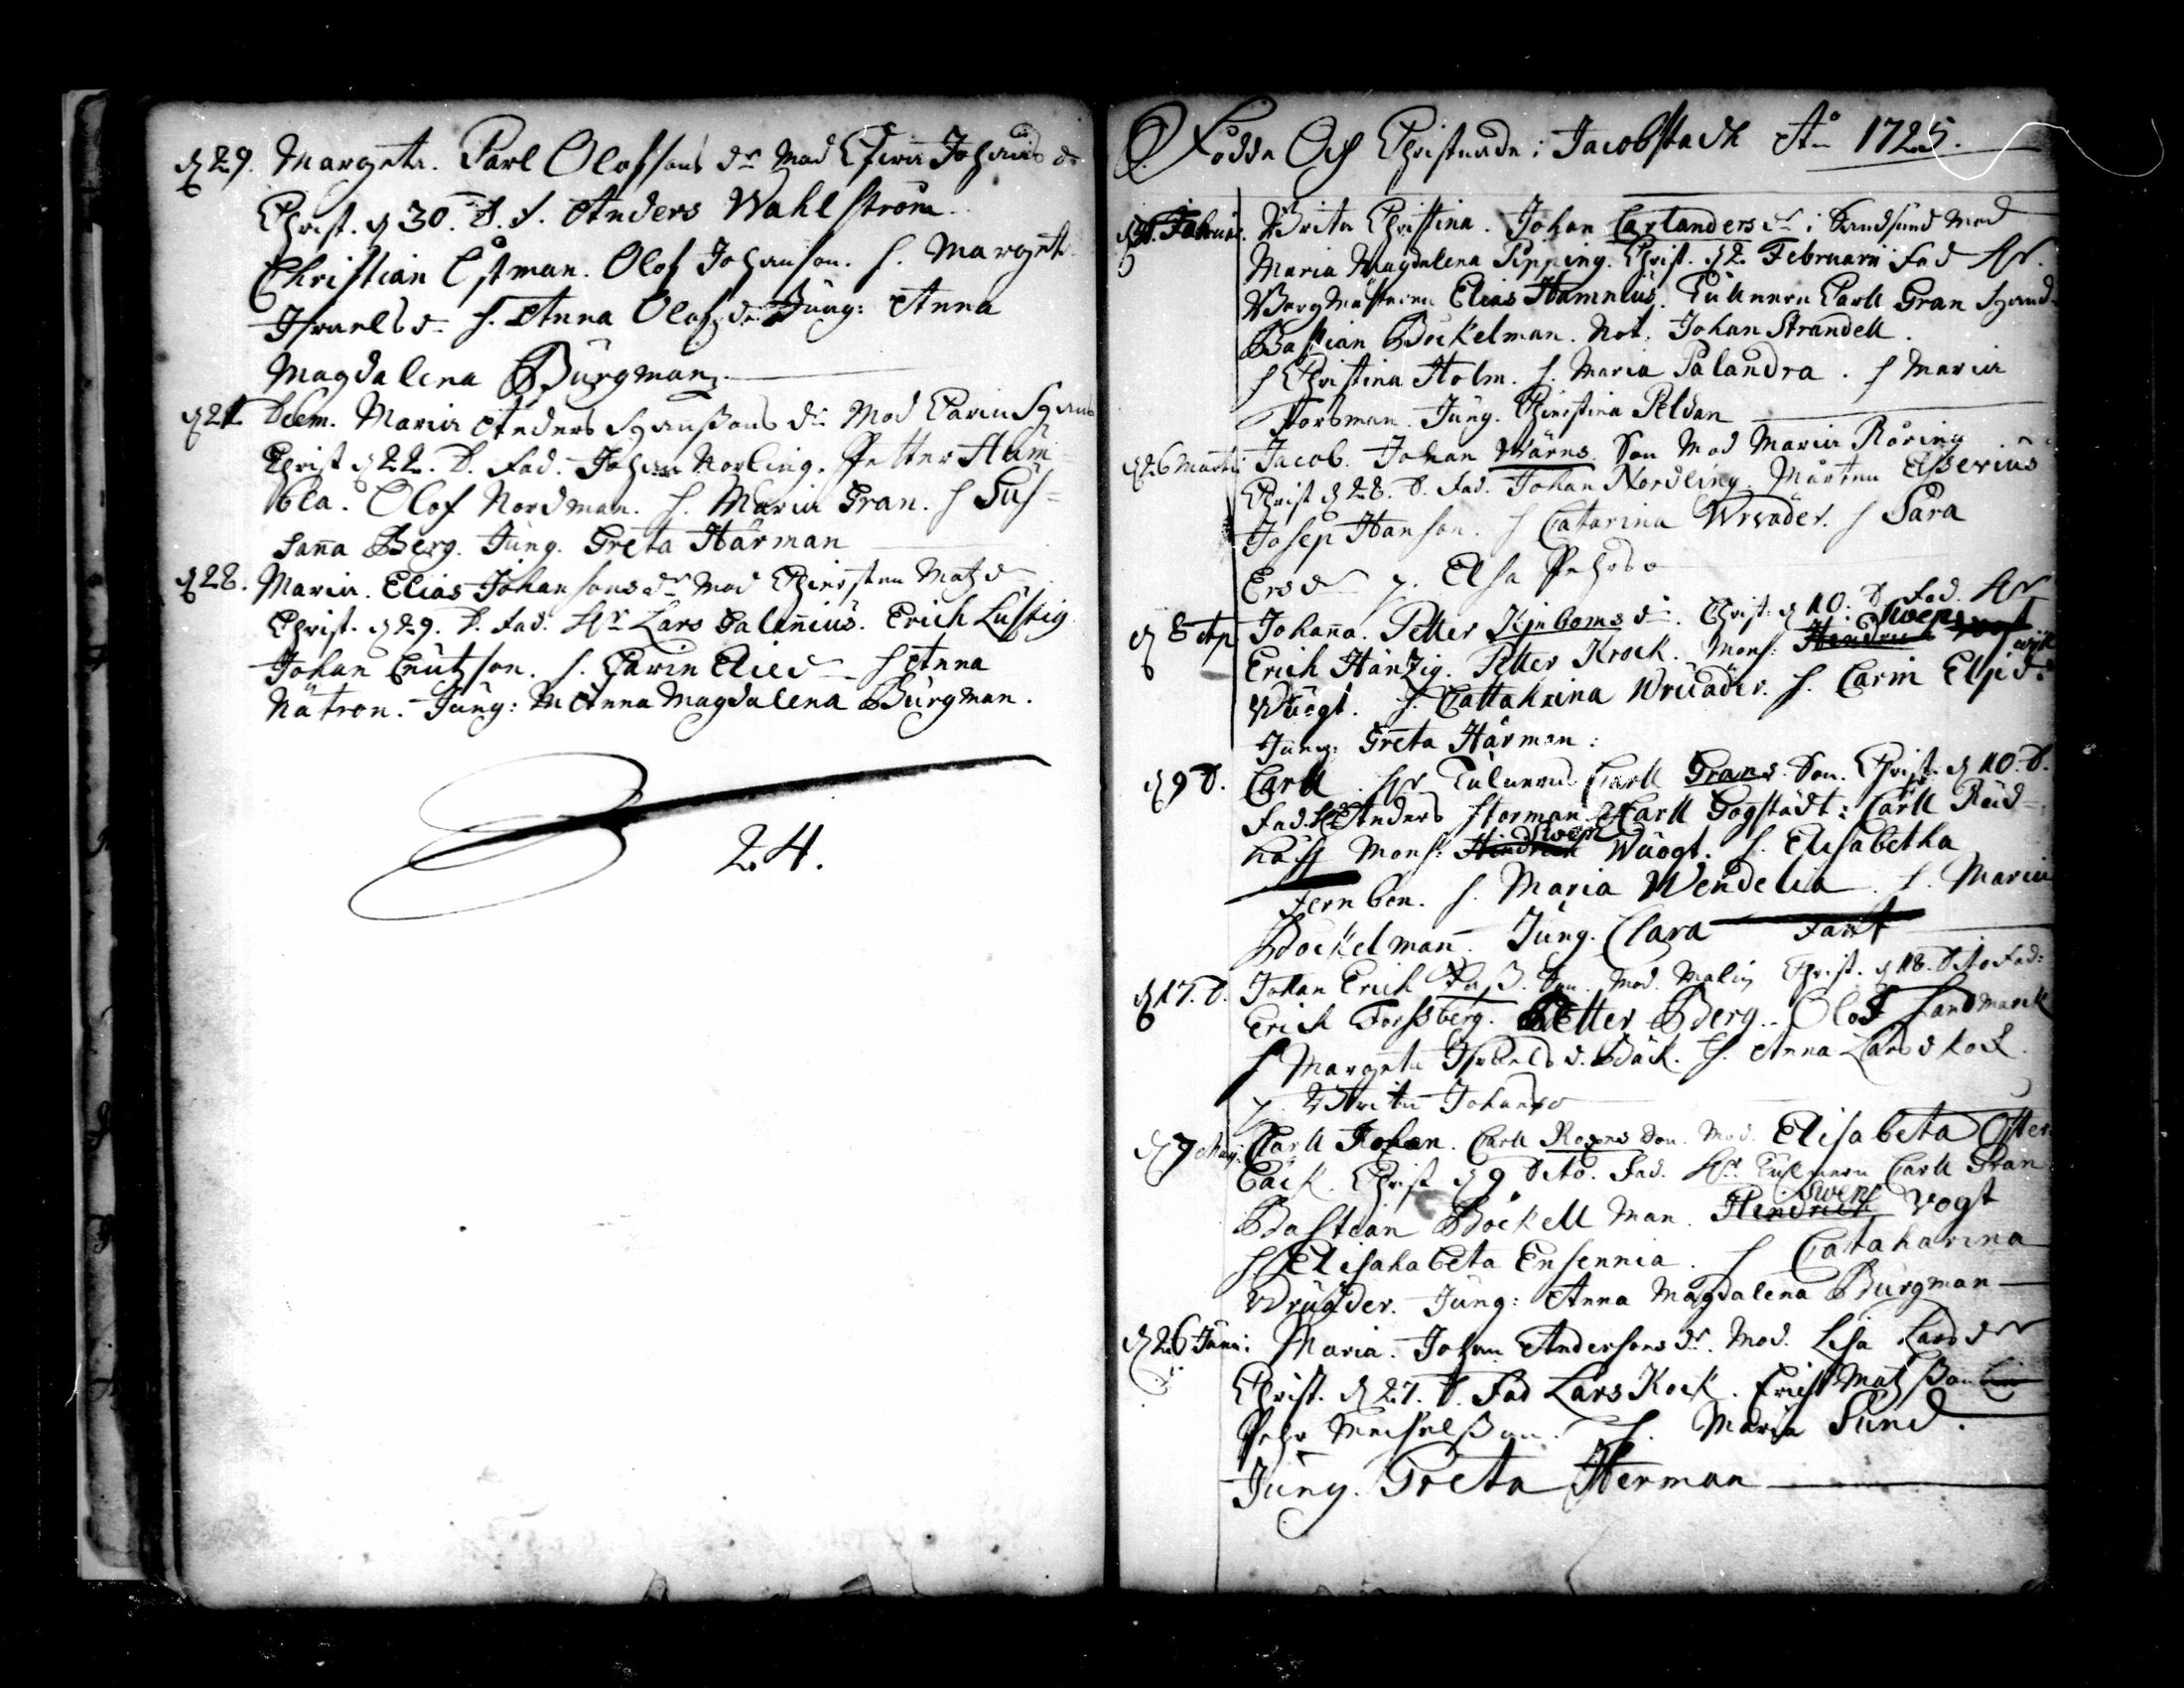 d 29. Margeta. Carl Olofsons dr Mod Johans dr
Christ. d 30. D. f. Anders Wahlström
Christian Östman. Olof Johanson. h. Marget
Israels dr h. Anna Olofs dr Jung: Anna
Magdalena Bürgman.
d 21 Decem. Maria Anders dr Mod Carin
Christ d 22. D. Fad. Johan Norling. Petter Ham
bla. Olof Nordman. h. Maria Gran. h Sus=
sanna Berg. Jung. Greta Härman
d 28. Maria. Elias Johansons dr Mod Chiersten Matz dr
Christ. d 29. D. Fad. Hr Lars Salenius. Erich Lustig
Johan Cnutzson. h. Carin Elies dr h Anna
Nätron. Jung: Anna Magdalena Bürgman.
24.
Födde Och Christnade i Jacobstadh A:o 1725.
d 1. Februar. Brita Christina. Johan Carlanders dr i Sandsund Mod
Maria Magdalena Pipping. Christ. d 2 Februarii Fad Hr.
Borgmästaren Elias Hamnius. Tullneren Carll Gran
Bastian Böckelman. Not. Johan Strandell.
h Christina Holm. h. Maria Palandra. h Maria
Forsman. Jung. Chierstina Peldan
d 26 Marti Jacob. Johan Wärns. Son Mod Maria Röring
Christ d 28. D. Fad. Johan Nordling. Mårten
Josep Hanson. h Catarina Wrüader. h Sara
Ersdr p. Elsa Pehrsdr
d 8 Ap Johanna. Petter Kjnboms dr. Christ. d 10. D Fad. Hr
Erich Hänzig. Petter Krock. Mons: Hendrich Swen
Wuogt. h. Cattahrina Wrüäder. h. Carin dr
Jung. Greta Härman:
d 9 D. Carll. Hr Tulneren Carll Grans. Son. Christ. d 10. D.
Fad. Hr Anders Storman Carll Gogstädt: Carll
Mons: Hindrich Swen Wuogt. h. Elisabetha
Fernbon. h. Maria Wendelia. h. Maria
Böckelman. Jung. Clara Fant
d 17. D. Johan Erich Son. Mod. Malin Christ. d 18. Dito Fad:
Erich Forssberg. Petter Berg. Olof Sandmarck
h Margeta Israels d. Bäck. h. Anna Lars d Kock.
p. Brita Johansdr
d 7 Maij. Carll Johan. Carll Son. Mod. Elisabeta Öster
bäck. Christ d 9 Dito. Fad. Hr Tullneren Carll Gran
Bastian Böckell man. Hendrich Swen Vogt
h. Elisahabeta Ensennia. h Cataharina
Wrüader. Jung: Anna Magdalena Bürgman
d 26 Juni: Maria. Johan Andersons dr. Mod. Lisa Lars dr
Christ. d 27. D. Fad Lars Kock. Erich Matzson
Pehr h. Maria Sund.
Jung. Greta Herman